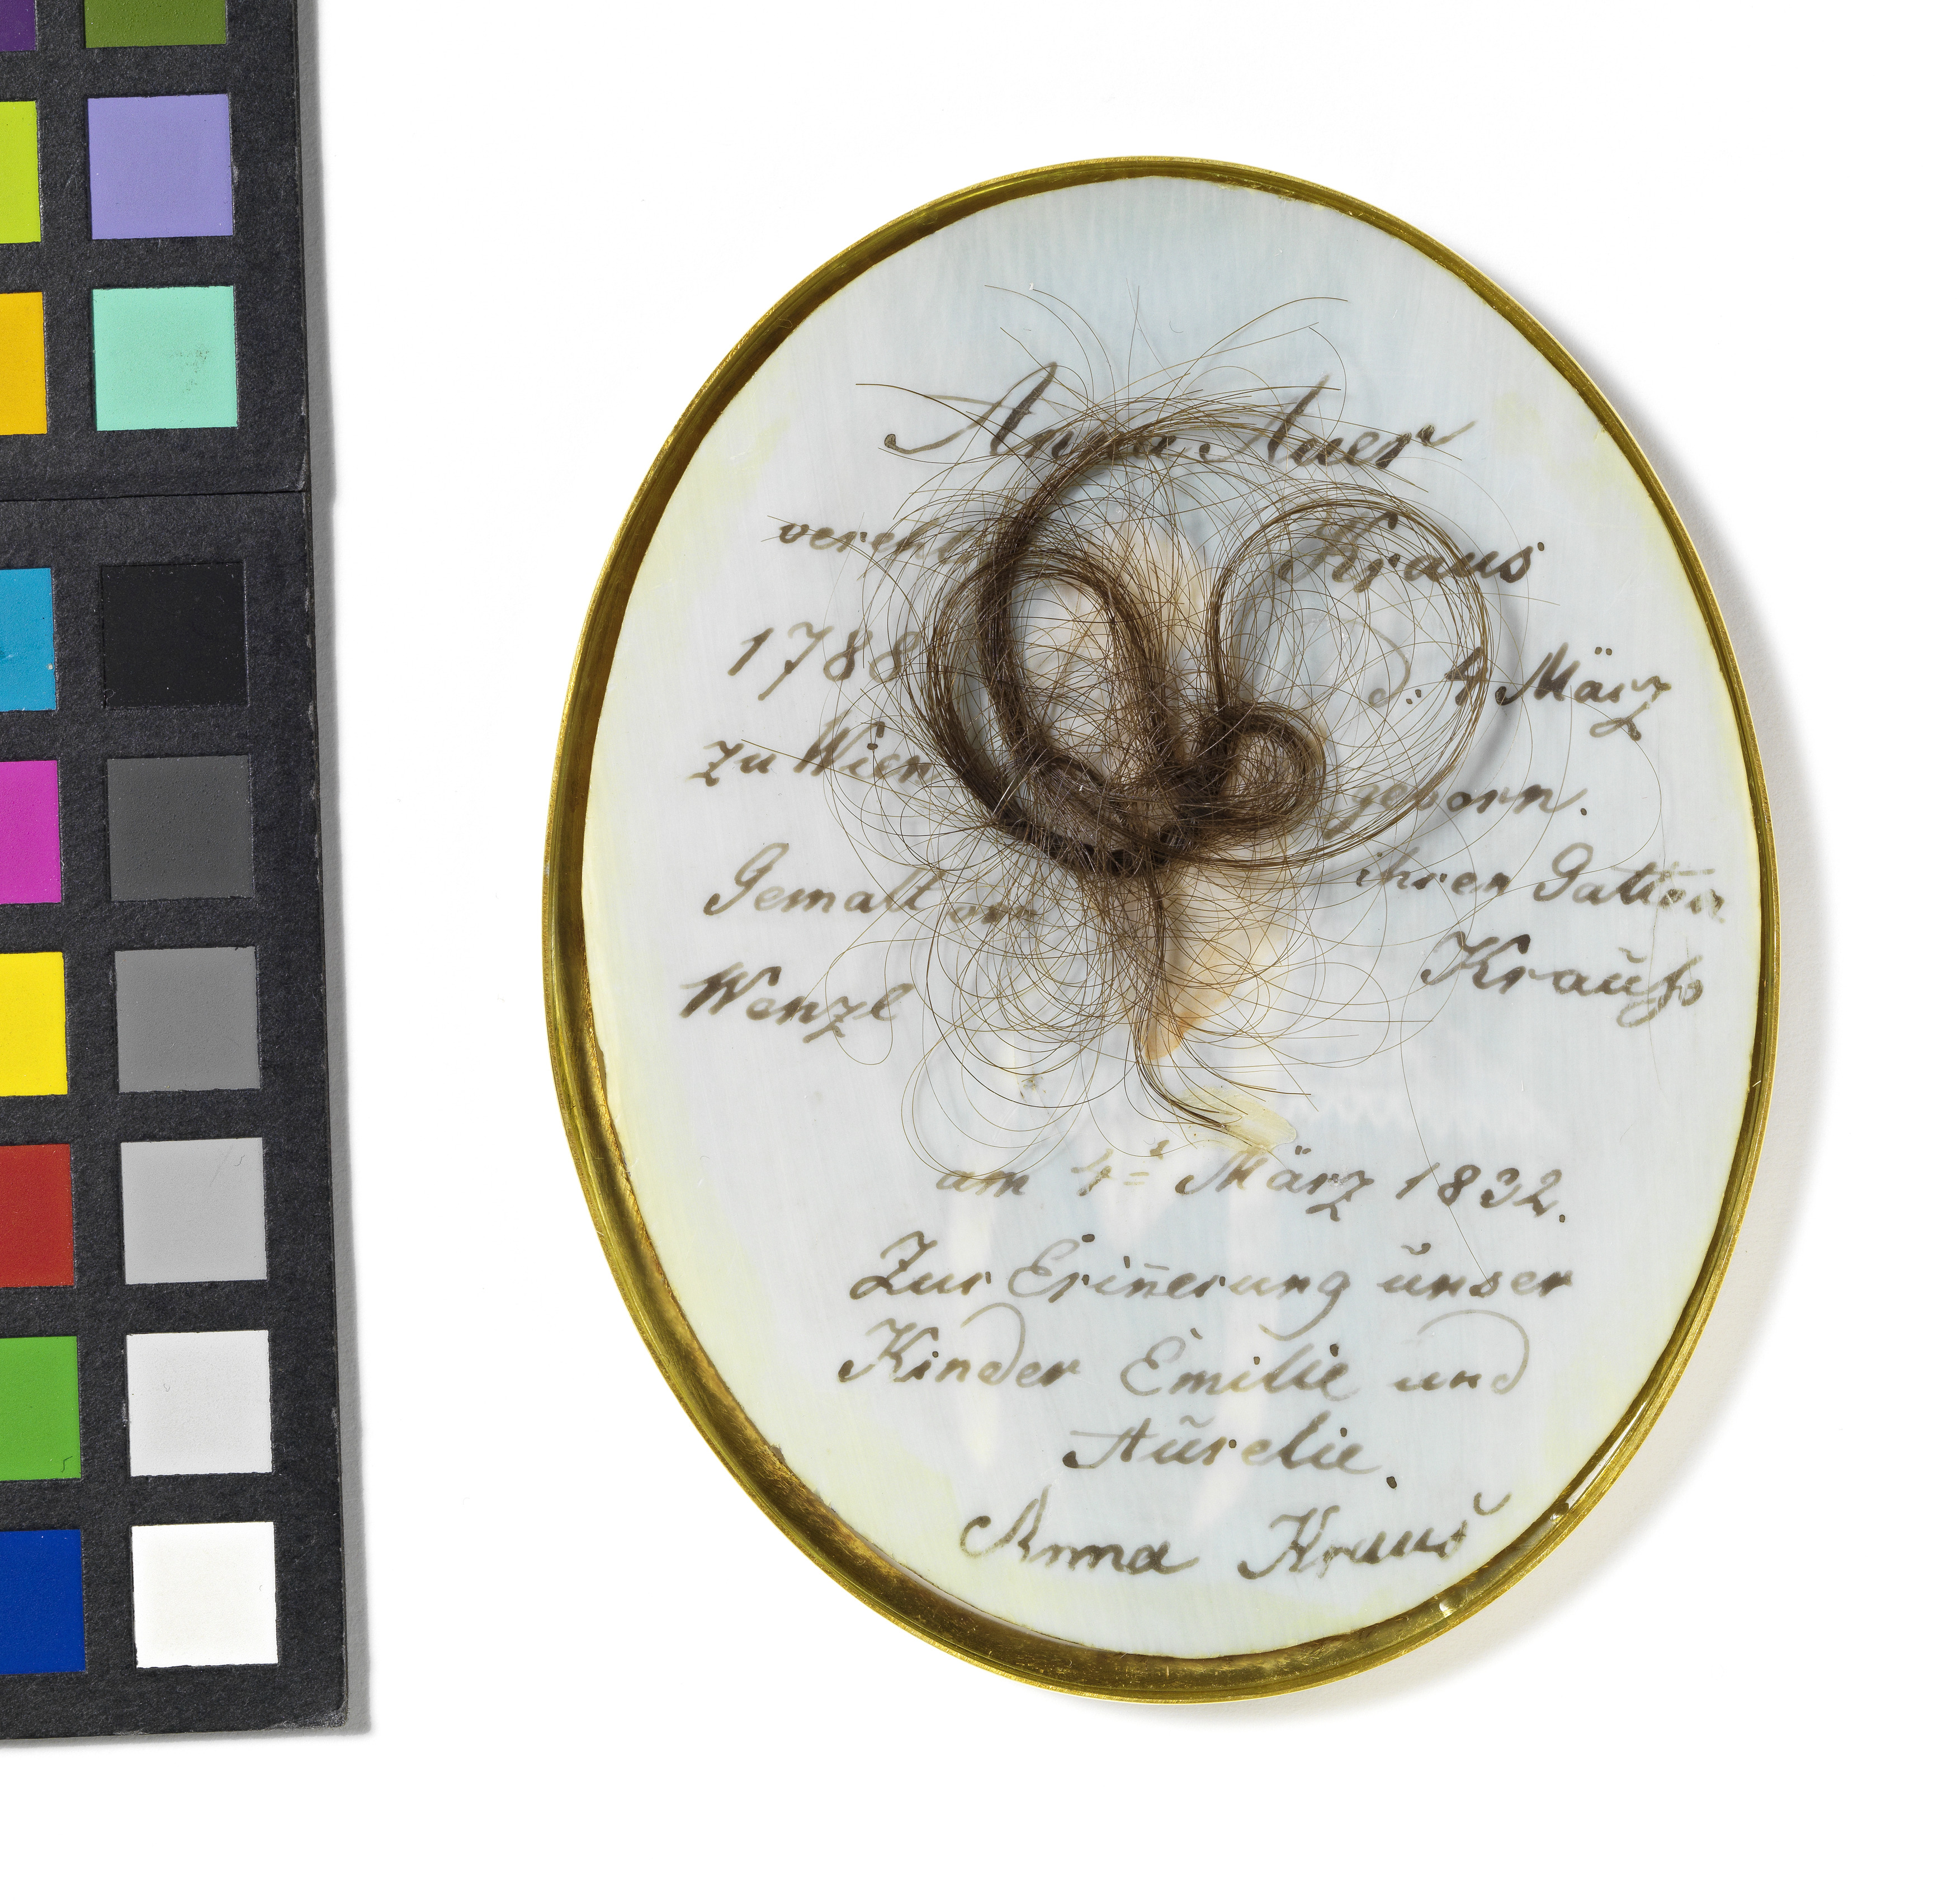 Anna Auer
verehl Kraus
1788 d. 4 März
zu Wien geborn.
Gemalt von ihren Gatten
Wenzl Kraufs
am 4= März 1832.
Zur Erin̄erung ŭnser
Kinder Emilie und
Aŭrelie.
Anna Kraus